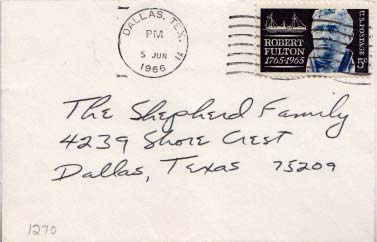 DALLAS, TEX.
PM
5 JUN
1966
ROBERT
FULTON
1765·1965
U.S. POSTAGE 5¢
The Shepherd Family
4239 Shore Crest
Dallas, Texas 75209
1270